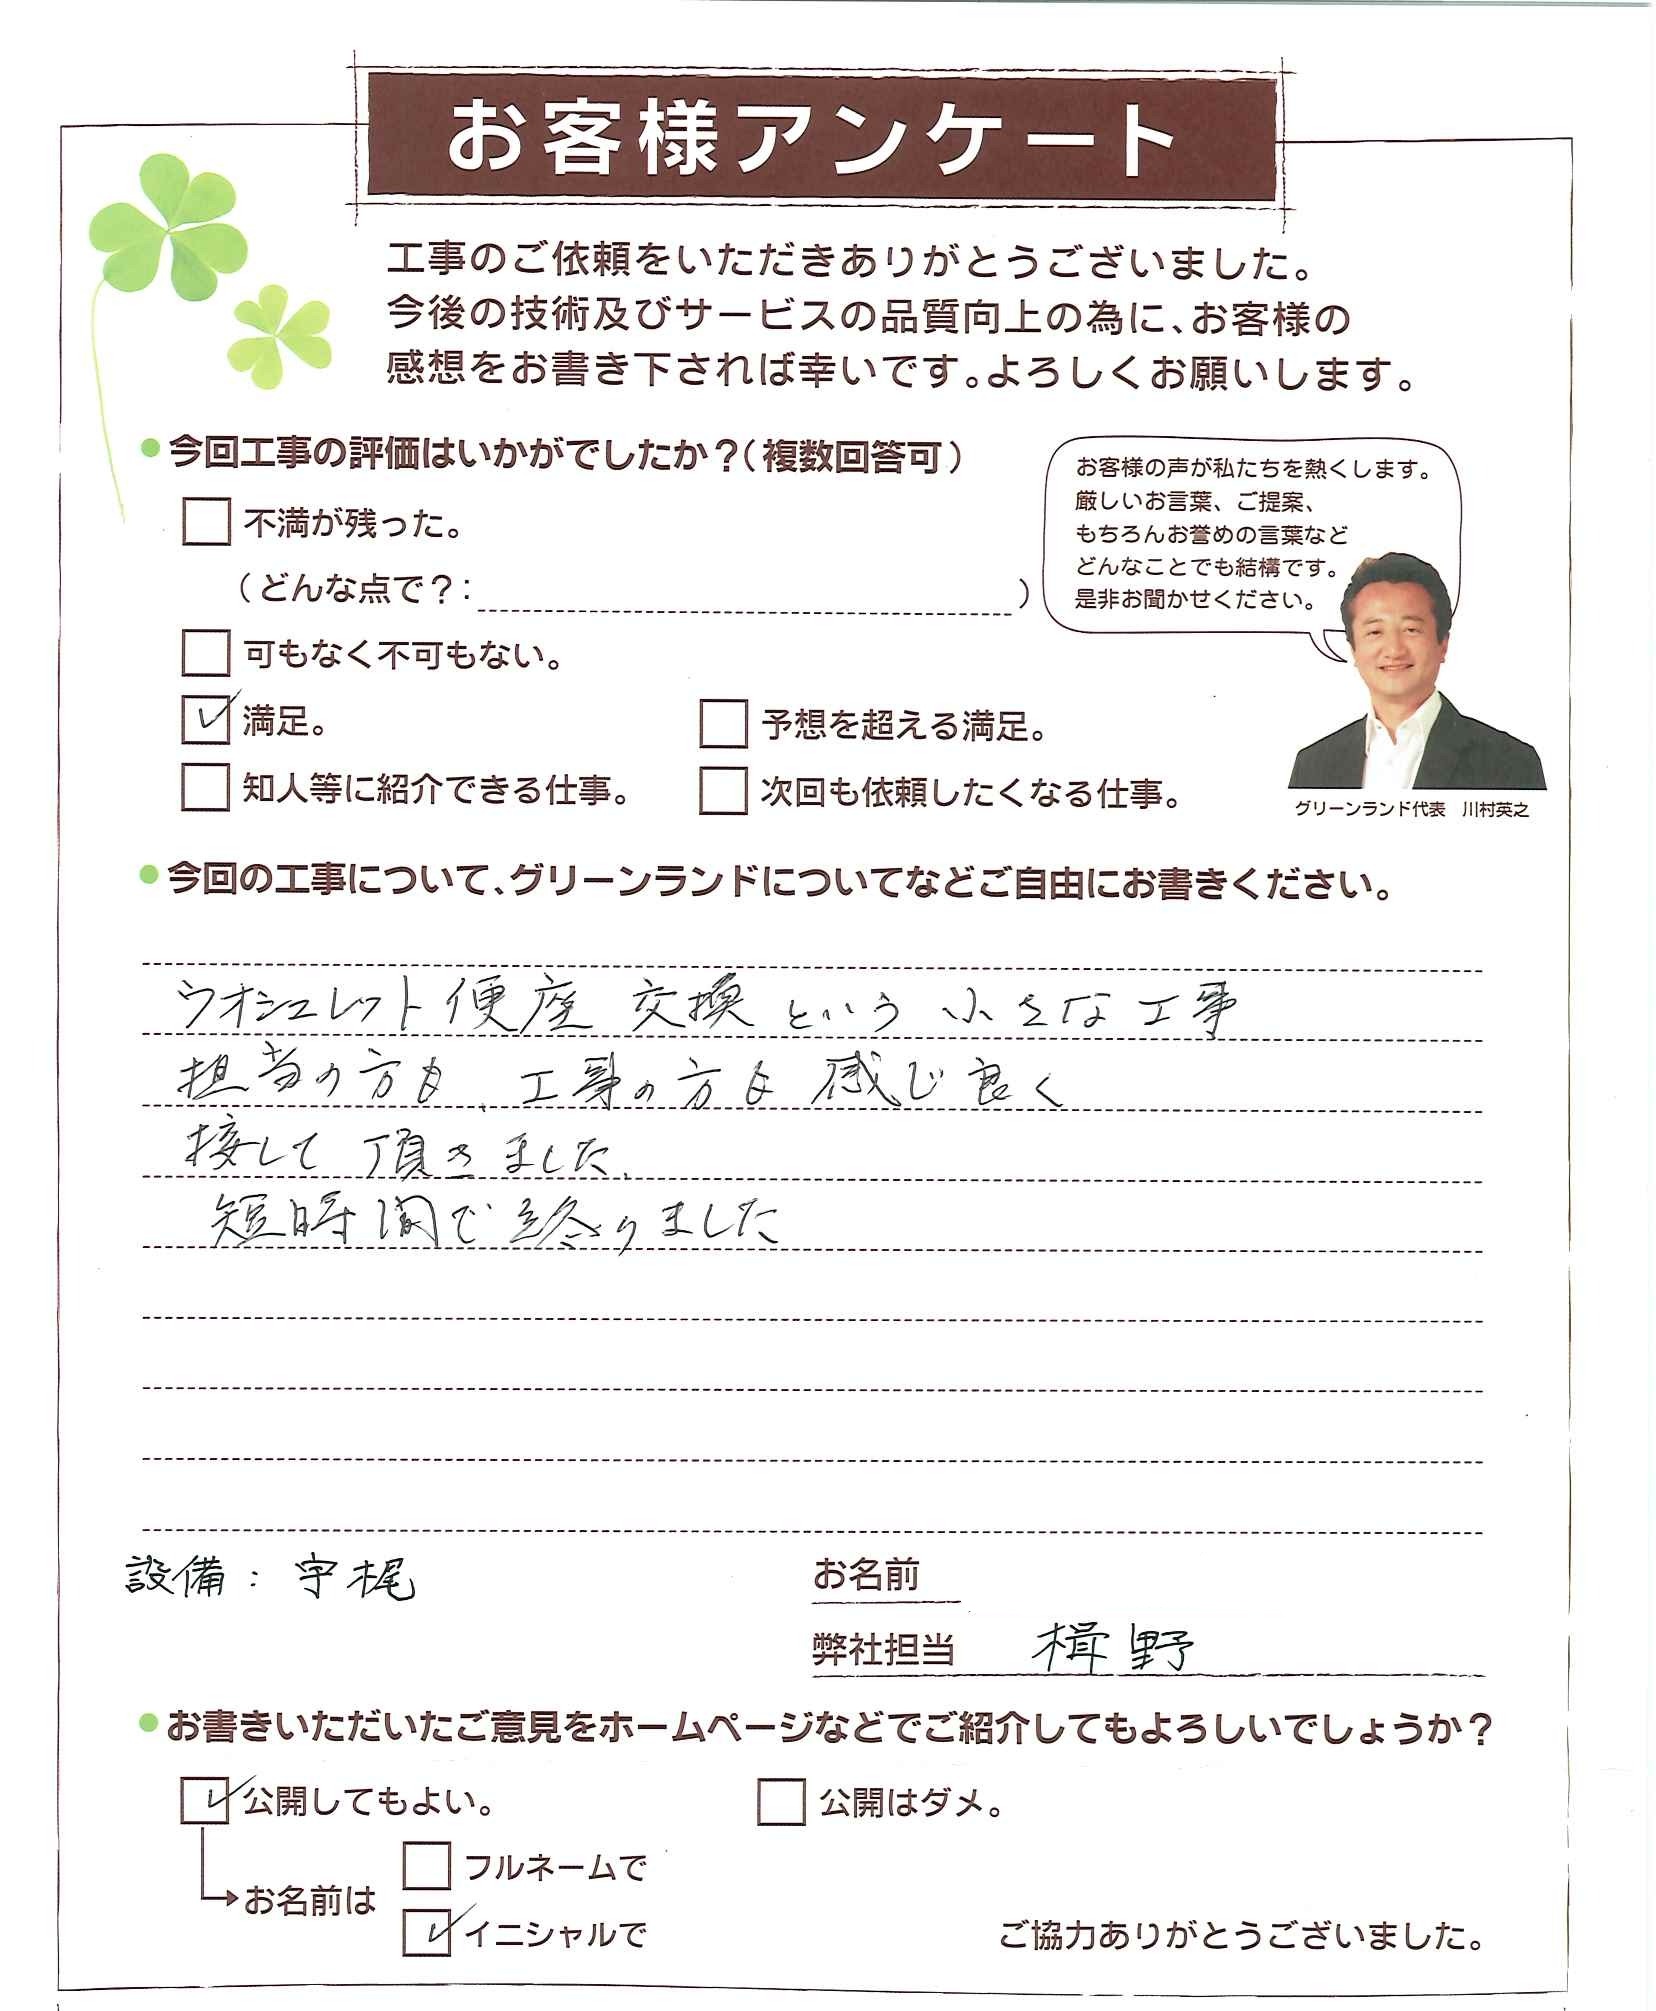 お客様アンケート
工事のご依頼をいただきありがとうございました。
今後の技術及びサービスの品質向上の為に、お客様の
感想をお書き下されば幸いです。よろしくお願いします。
今回工事の評価はいかがでしたか？（複数回答可）
不満が残った。
（どんな点で？：　）
可もなく不可もない。
満足。
予想を超える満足。
知人等に紹介できる仕事。
次回も依頼したくなる仕事。
お客様の声が私たちを熱くします。
厳しいお言葉、ご提案、
もちろんお誉めの言葉など
どんなことでも結構です。
是非お聞かせください。
グリーンランド代表　川村英之
今回の工事について、グリーンランドについてなどご自由にお書きください。
ウオシュレット便座 交換 という 小さな工事
担当の方も、工事の方も 感じ良く
接して 頂きました、
短時間で 終りました
設備：宇梶
お名前
弊社担当　楫野
お書きいただいたご意見をホームページなどでご紹介してもよろしいでしょうか？
公開してもよい。
公開はダメ。
お名前は
フルネームで
イニシャルで
ご協力ありがとうございました。